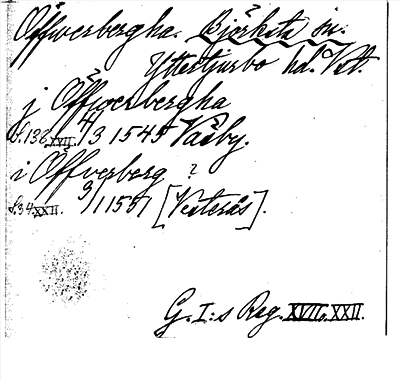 Öffwerbergha. Björksta sn.
Yttertjurbo hd. Vtl.
j Öffwerbergha
s. 138 XVII. 4/3 1545 Väsby.
i Öffverberg ?
s. 34 XXII. 3/1 1551 [Vesterås].
G. I:s Reg. XVII, XXII.